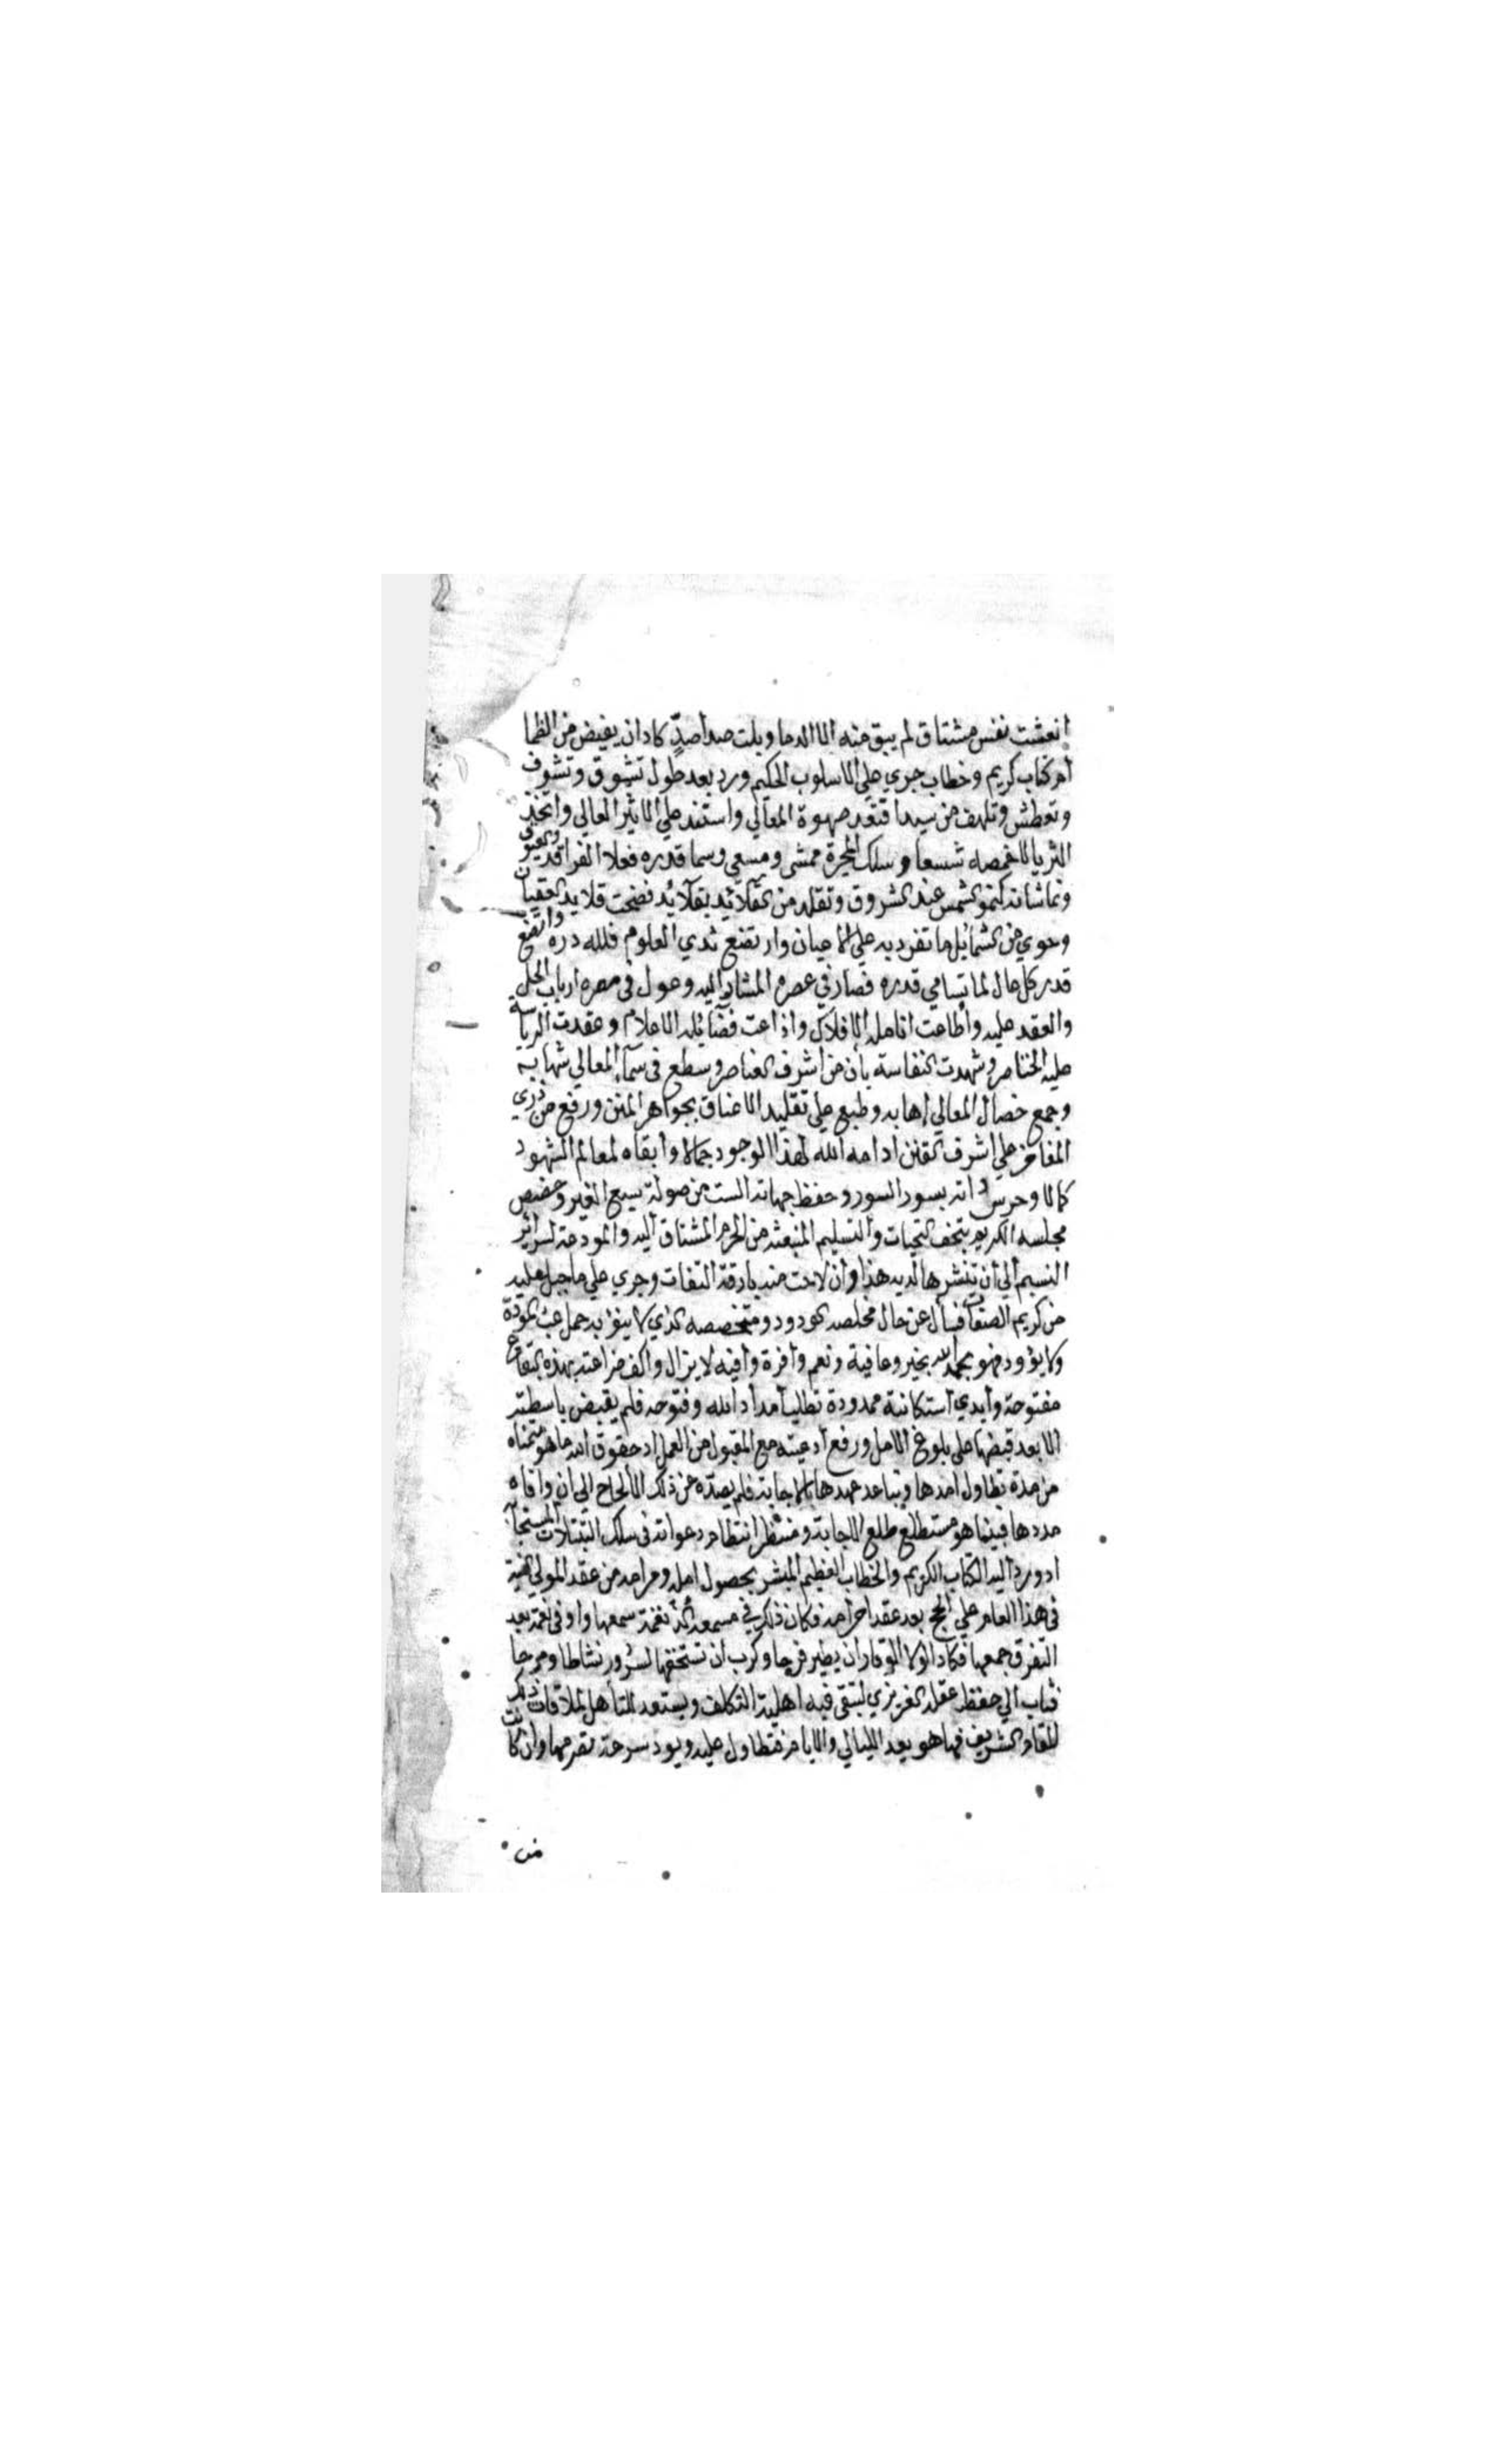 أنعشت نفس مشتاق لم يبق منه الا الدما وبلت صدا صدّ كادان يفيض من الظما
أم كتاب كريم وخطاب جري علي الاسلوب الحكيم ورد بعد طول تشوق وتشوف
وتعطش وتلهف من سيد اقتعد صهوة المعالي واستند علي الاثير العالي واتخذ
الثريا لاخمصه شسعا وسلك المجرة ممشى ومسعى وسما قدره فعلا الفراقدين والعيوق
ونما شانه كنمو الشمس عند الشروق وتقلد من القلائد بقلائد فضحت قلايد العقيان
وحوي من الشمائل ما تفرد به علي الاعيان وارتضع ثدي العلوم فلله دره واتضع
قدر كل عال لما تسامي قدره فصار في عصره المشار اليه وعول في مصره ارباب الحل
والعقد عليه وأطاعت انامله الافلاك واذاعت فضائله الاعلام وعقدت الرياسة
عليه الخناصر وشهدت النفاسة بأن من اشرف العناصر وسطع في سماء المعالي شهابه
وجمع خصال المعالي إهابه وطبع علي تقليد الاعناق بجواهر المنن ورفع من ذري
المفاخر علي اشرف القنن ادامه الله لهذا الوجود جمالا وأبقاه لمعالم الشهود
كمالا وحرس ذاته بسور السور وحفظ جهاته الست من صولة سبع الغير وخصص
مجلسه الكريم بتحف التحيات والتسليم المنبعثه من الحرم المشتاق اليه والمودعة لسرائر
النسيم ألي أن تنشرها لديه هذا وأن لاحت منه بارقة التفات وجري علي ما جبل عليه
من كريم الصفات فسأل عن حال مخلصه الودود ومتخصصه الذي لا ينؤ به حمل عبئ المودة
ولا يؤود فهو بحمد الله بخير وعافية ونعم وافرة وافيه لا يزال واكف ضراعته بهذه البقاع
مفتوحة وأيدي استكانته ممدودة تطلب أمداد الله وفتوحه فلم يقبض باسطته
الا بعد قبضها علي بلوغ الامل ورفع أدعيته مع المقبول من العمل اد حقوق الله ما هو متمناه
من مدة تطاول امدها وتباعد عهدها بالاجابة فلم يصدّه عن ذلك الألحاح الي ان وافاه
مددها فبينما هو مستطلع طلع الاجابة ومنتظر انتظام دعواته في سلك التبتلات المستجابة
اد ورد اليه الكتاب الكريم والخطاب العظيم المبشر بحصول امله ومرامه من عقد المولي النية
في هذا العام علي الحج بعد عقد احرامه فكان ذلك في مسمعه الذ نغمة سمعها واوفي نعمة بعد
التفرق جمعها فكاد لولا الوقار ان يطير فرحا وكرب ان تستخفها لسرور نشاطا ومرحا
فثاب الي حفظ عقله الغريزي لتبقى فيه اهلية التكلف ويستعد للتأهل لملاقات ذلك
المقام الشريف فها هو يعد الليالي والايام فتطاول عليه ويود سرعة تصرمها وان كانت
من